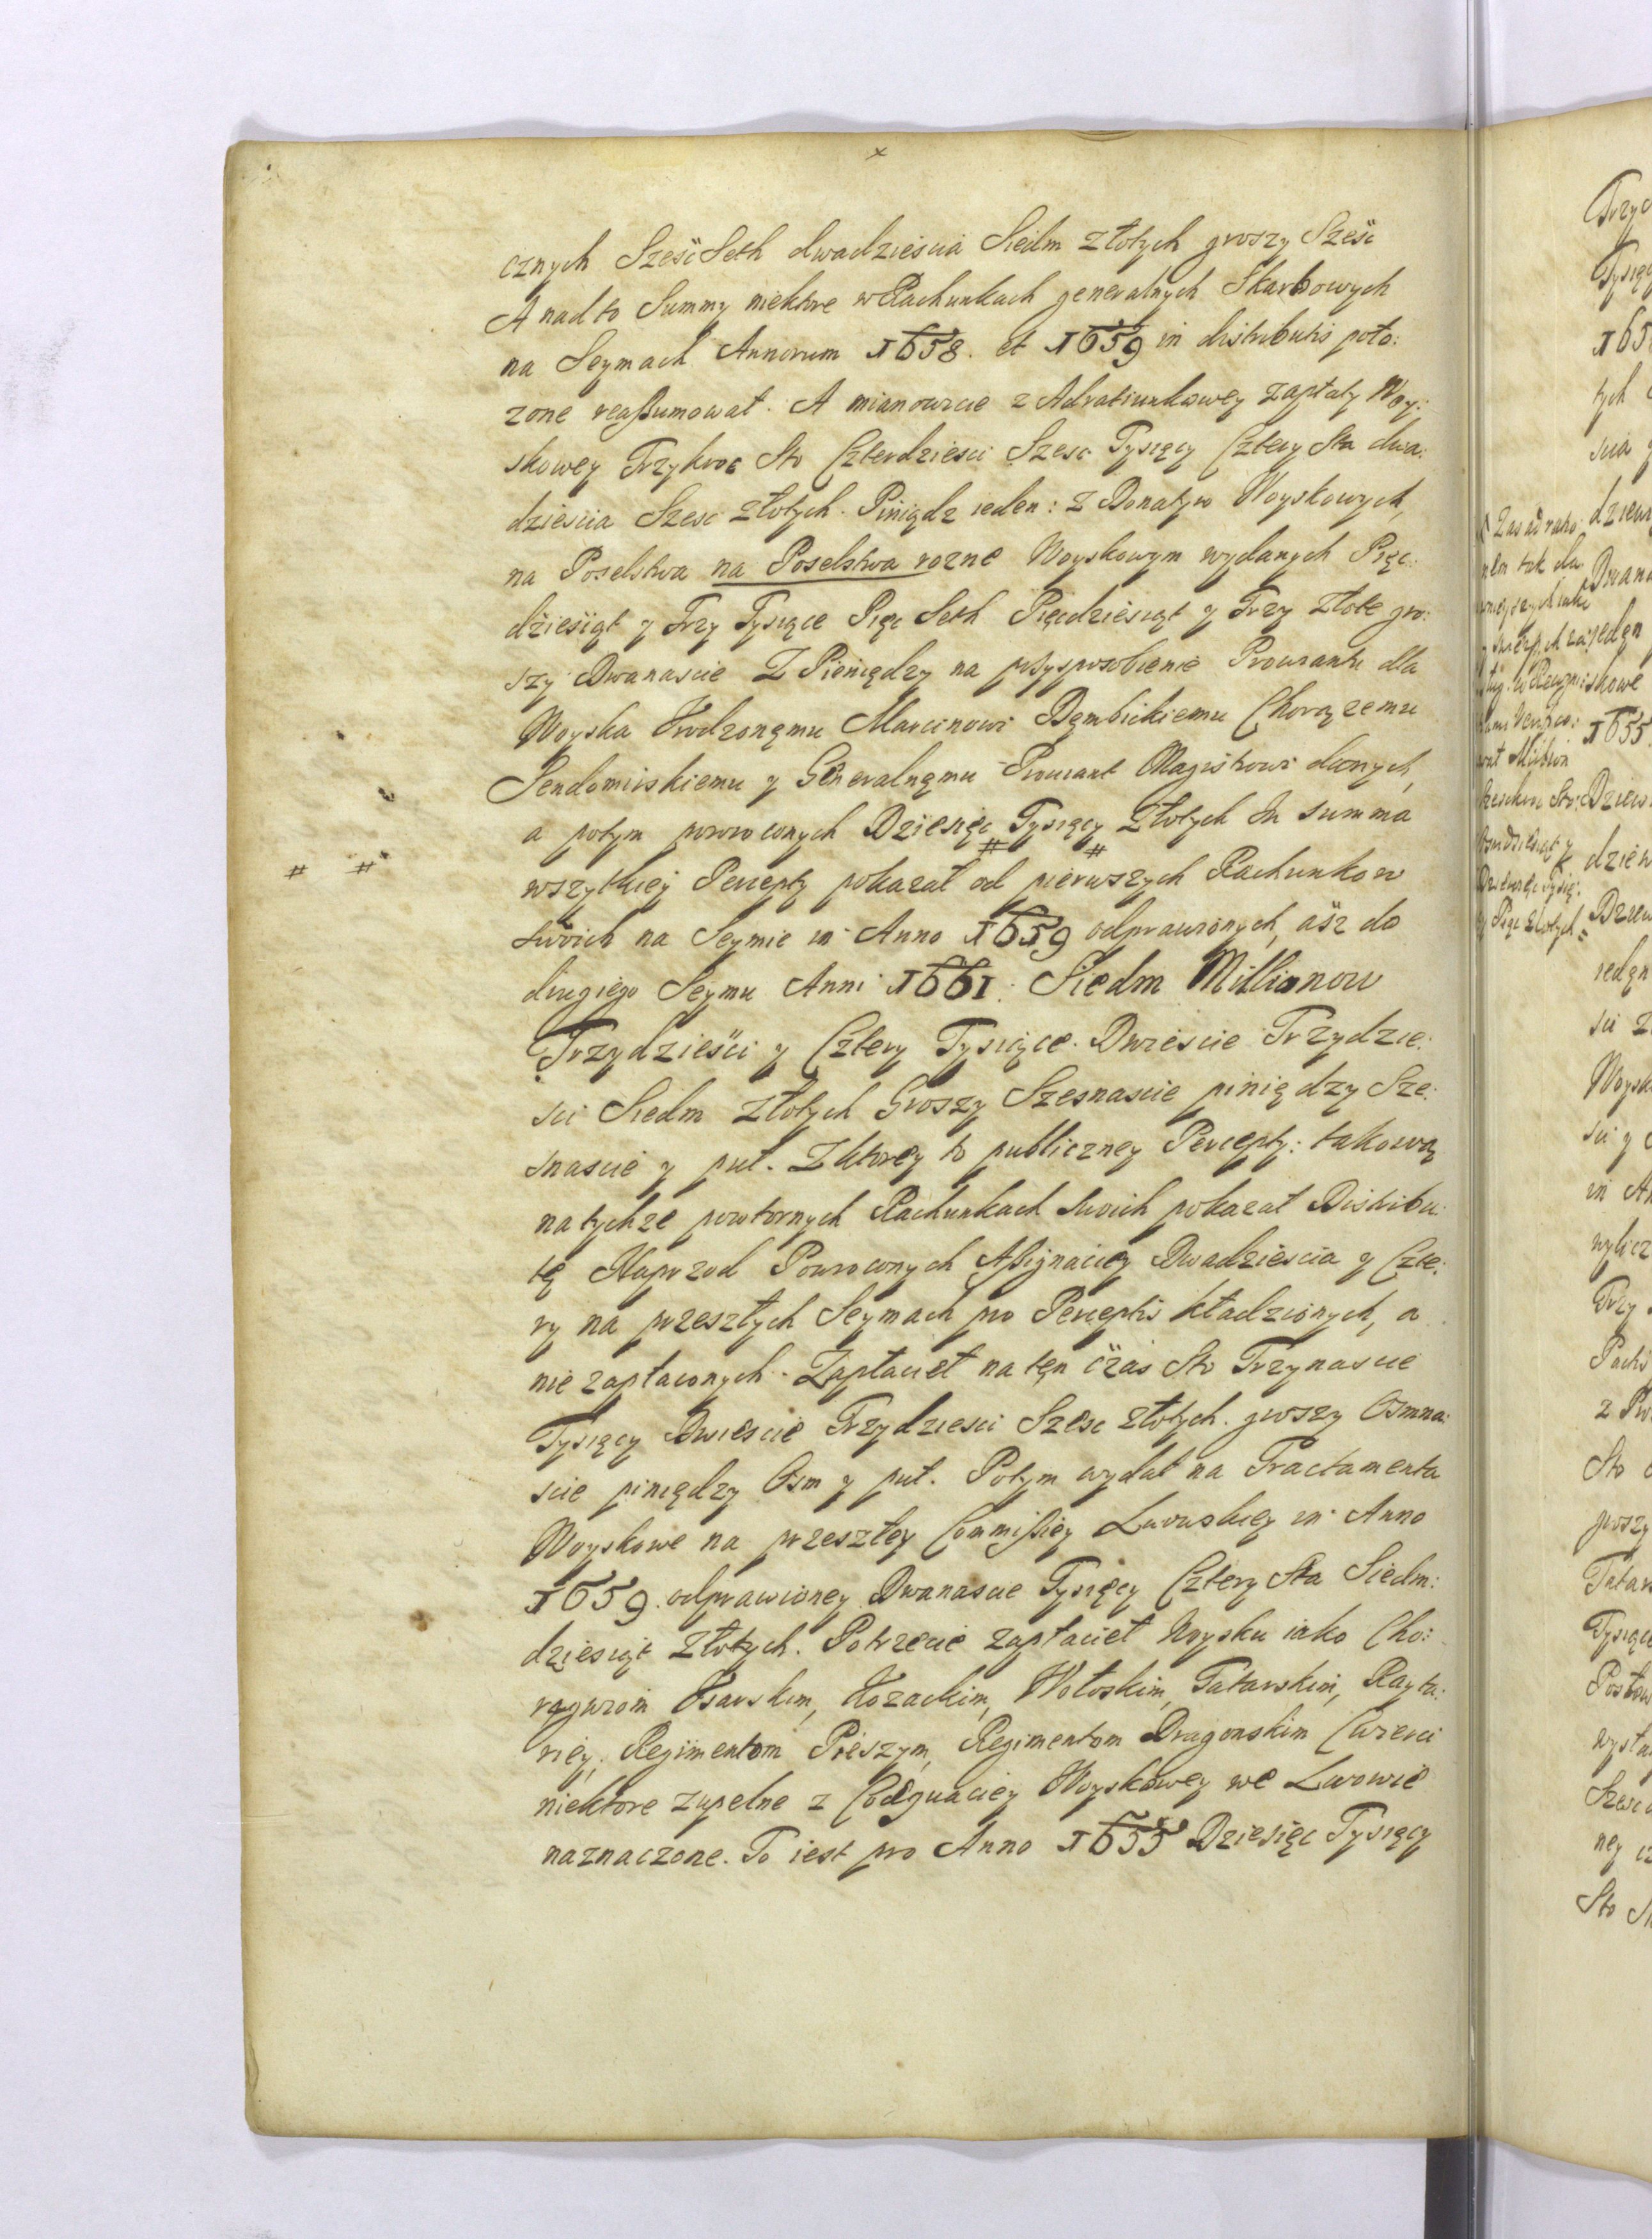 cznych Sześc Seth dwadzieścia Siedm złotych groszy Sześc
A nad to Summy niektore w Rachunkach generalnych Skarbowych
na Seymach Annorum 1658. et 1659 in distributis poło:
zone reassumował. A mianowicie z Adratiunkowey zapłaty Woy:
skowey Trzykroc Sto Czterdziesci Szesc Tysięcy Cztery Sta dwa:
dziescia Szesc złotych. Piniądz ieden: z Donatyw Woyskowych,
na Poselstwa na Poselstwa rozne Woyskowym wydanych Pięc:
dziesiąt y Trzy Tysiące Pięc Seth Pięcdziesiąt y Trzy złote gro:
szy Dwanascie Z Pieniędzy na przysposobienie Prowiantu dla
Woyska Urodzonęmu Marcinowi Dęmbickiemu Chorązemu
Sendomirskiemu y Generalnęmu Prowiant Magistrowi danych,
a potym powroconych Dziesięc Tysięcy Złotych In summa
# #
wszytkiey Percepty pokazał od pierwszych Rachunkow
swoich na Seymie in Anno 1659 odprawionych, asz do
drugiego Seymu Anni 1661: Siedm Millionow
# #
Trzydzieści y Cztery Tysiące Dwiescie Trzydzie:
sci Siedm złotych Groszy Szesnascie piniędzy Sze:
snascie y puł. Z ktorey to publiczney Percepty: takową
na tychze powtornych Rachunkach swoich pokazał Distribu:
tę Naprzod Powroconych Assignaciey Dwadziescia y Czte:
ry na przeszłych Seymach pro Perceptis kładzionych, a
nie zapłaconych. Zapłacieł na tęn czas Sto Trzynascie
Tysięcy Dwiescie Trzydziesci Szesc złotych. groszy Osmna:
scie piniędzy Osm y puł. Potym wydał na Tractamenta
Woyskowe na przeszłey Commissiey Lwowskiey in Anno
1659. odprawioney Dwanascie Tysięcy Cztery Sta Siedm:
dziesiąt Złotych. Potrzecie zapłacieł Woysku iako Cho:
rągwiom Usarskim, Kozackim, Wołoskim, Tatarskim, Rayta:
riey, Regimentom Pieszym, Regimentom Dragonskim Cwierci
niektore zupełne z Coæquaciey Woyskowey we Lwowie
naznaczone. To iest pro Anno 1655 Dziesięc Tysięcy